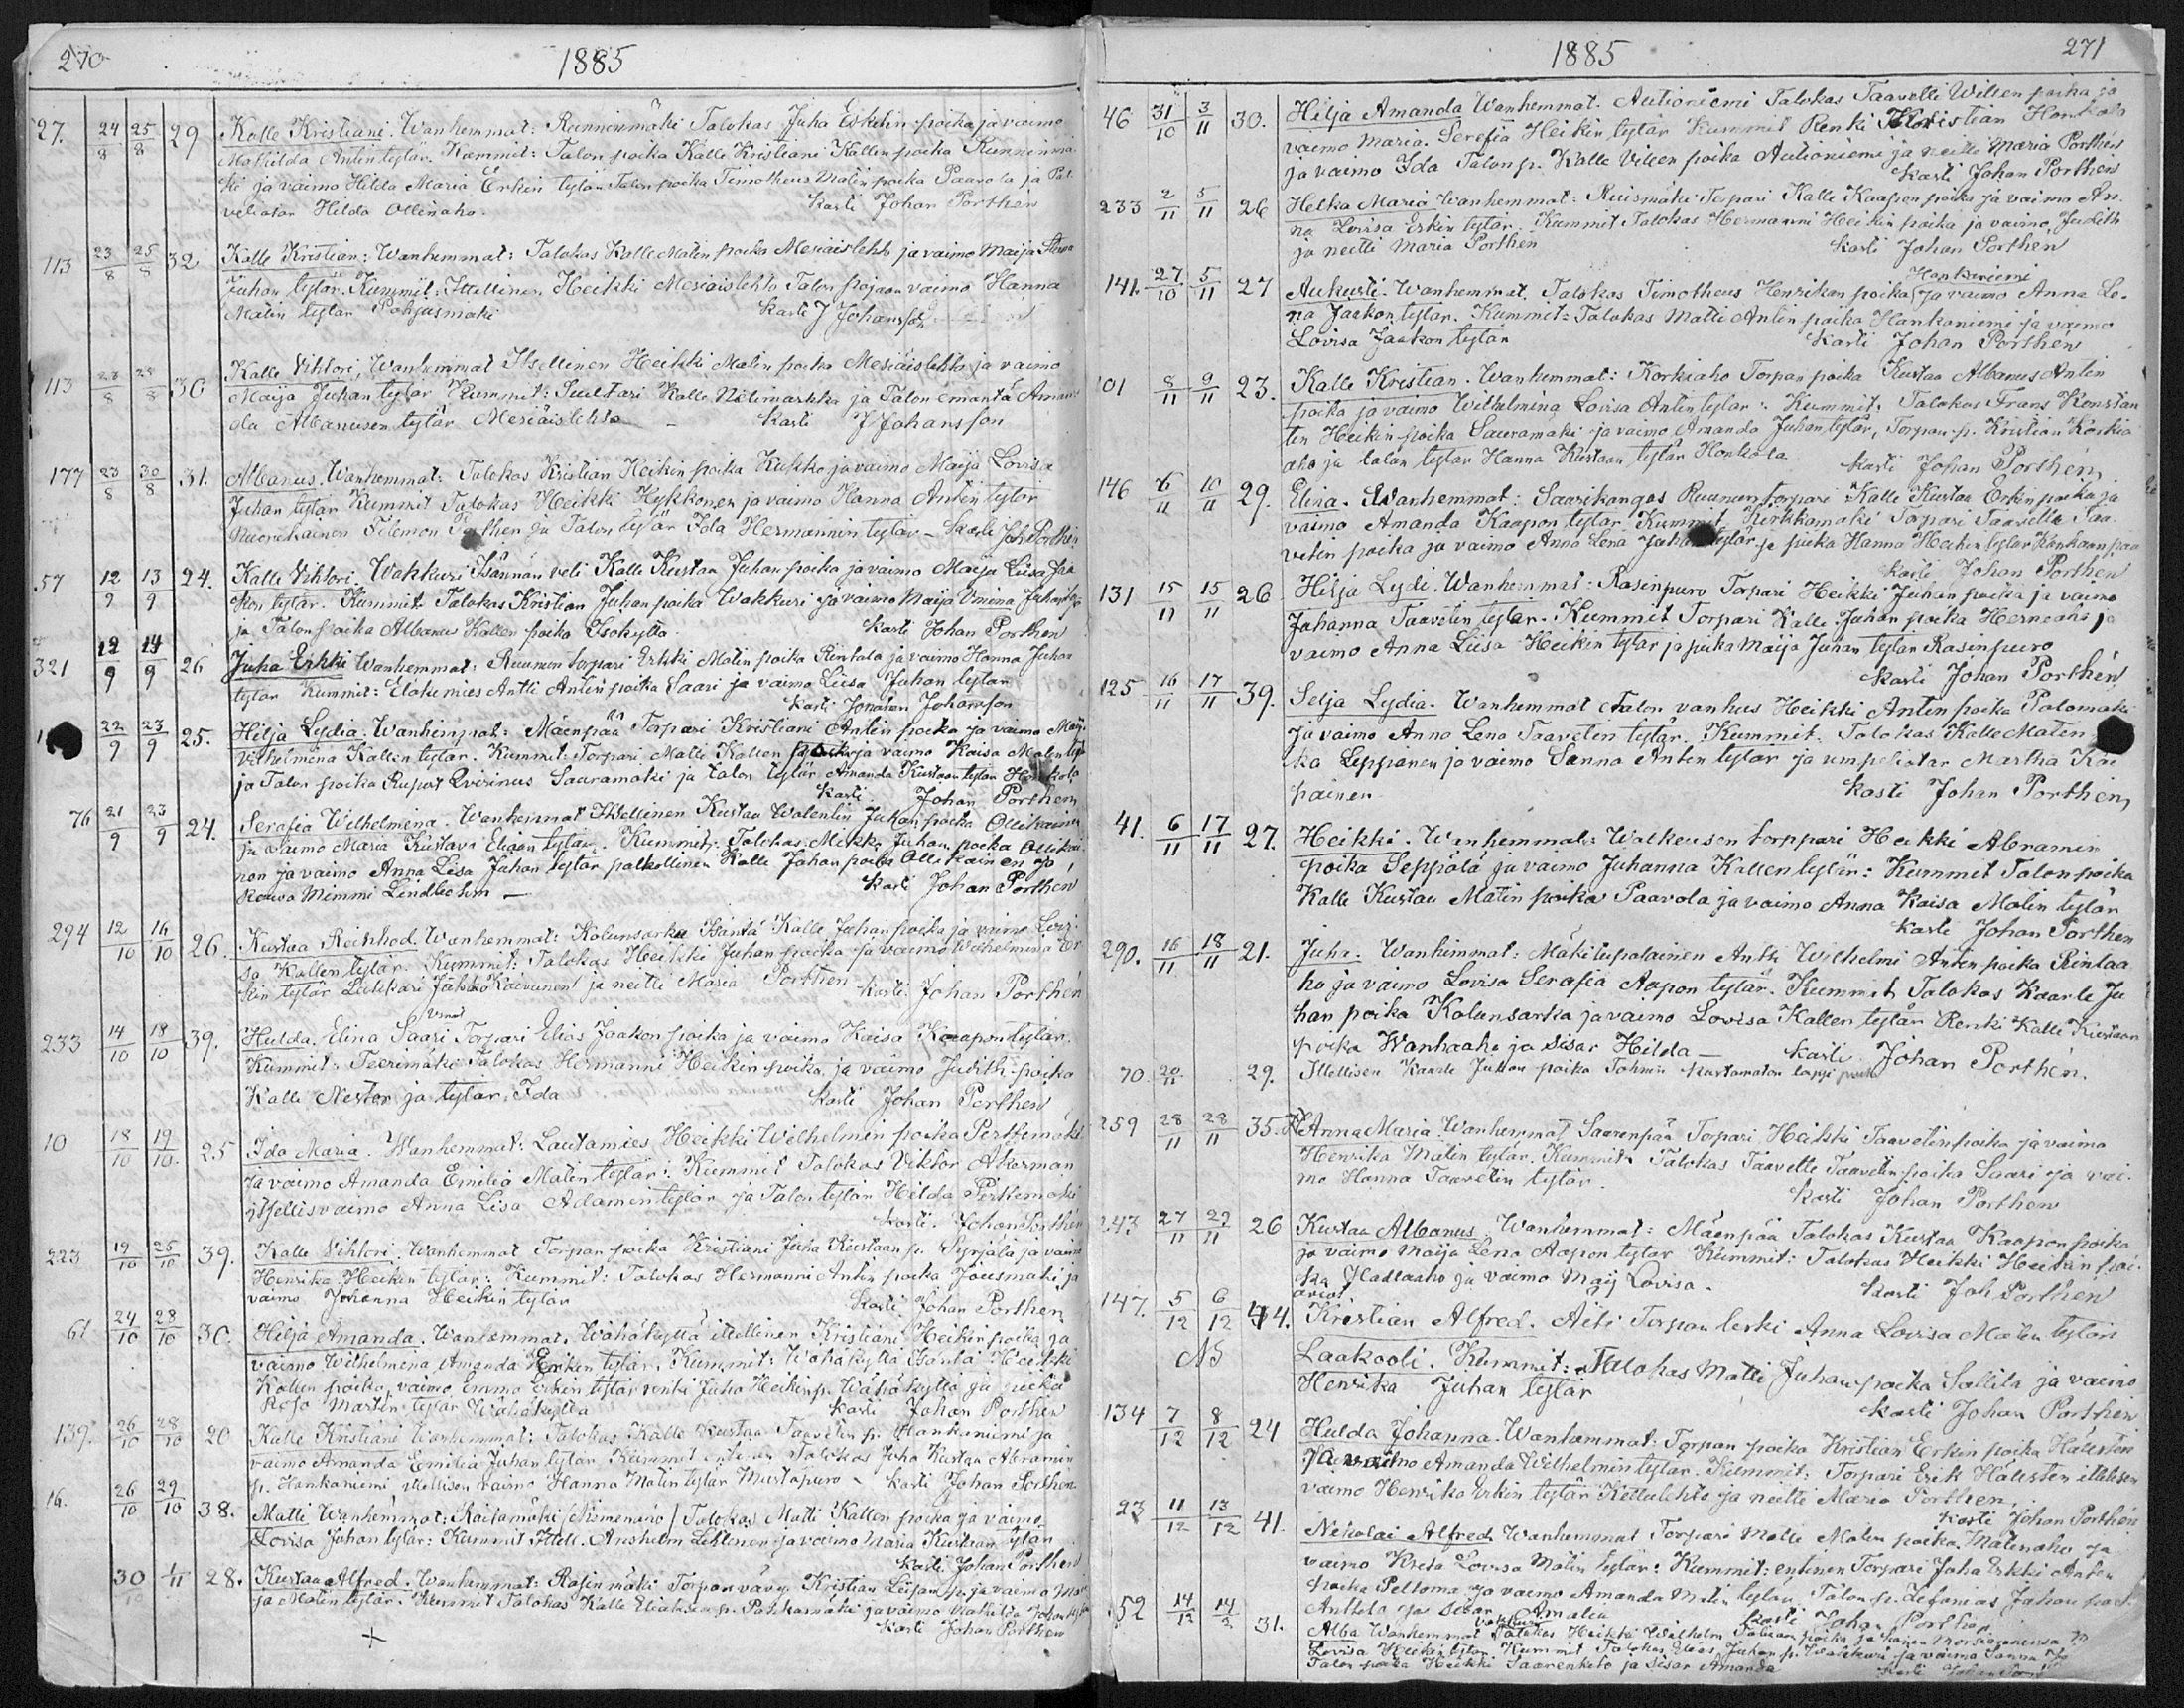 270
1885
27. 24/8 25/8 29 Kalle Kristiani. Wanhemmat: Runninmäki Talokas Juha Eskelin poika ja vaimo
Mathilda Antin tytär. Kummit: Talon poika Kalle Kristiani Kallen poika Runninmä
ki ja vaimo Hilda Maria Erkin tytär Talon poika Timotheus Matin poika Paavola ja Pal
veliatar Hilda Ollinaho. Kasti Johan Porthén
113 23/8 25/8 32 Kalle Kristian: Wanhemmat: Talokas Kalle Matin poika Mesiäislehto ja vaimo Maija
Juhan tytär. Kummit: Ittellinen Heikki Mesiäislehto Talon pojan vaimo Hanna
Matin tytär Pohjasmäki Kasti J Johansson
113 23/8 28/8 30 Kalle Vihtori, Wanhemmat Itsellinen Heikki Matin poika Mesiäislehto ja vaimo
Maija Juhan tytär Kummit: Suultari Kalle Niilimarkka ja Talon emäntä Aman
da Albanusen tytär Mesiäislehto – Kasti J Johansson
177 23/8 30/8 31. Albanus. Wanhemmat: Talokas Kristian Heikin poika Kukko ja vaimo Maija Lovisa
Juhan tytär Kummit Talokas Heikki Hykkonen ja vaimo Hanna Antin tytär
Nuorukainen Filemon Porthen ja Talon tytär Ida Hermannin tytär – Kasti Joh Porthén
57 12/9 13/9 24. Kalle Vihtori. Wakkuri Isännän veli Kalle Kustaa Juhan poika ja vaimo Maija Liisa Jaa
kon tytär. Kummit. Talokas Kristian Juhan poika Wakkuri ja vaimo Maija Juhan
ja Talon poika Albanus Kallen poika Isokyttö. Kasti Johan Porthén
321 12/9 14/9 26 Juha Erkki Wanhemmat: Ruunun torpari Erkki Matin poika Rintala ja vaimo Hanna Juhan
tytär Kummit: Eläke mies Antti Antin poika Saari ja vaimo Liisa Juhan tytär
Kasti Jonatan Johansson
22/9 23/9 25. Hilja Lydia. Wanhemmat: Mäenpää Torpari Kristiani Antin poika ja vaimo Maija
Vilhelmina Kallen tytär. Kummit: Torpari Matti Kallen poika ja vaimo Kaisa Matin tytär
ja Talon poika Rupert Qvirinus Sauramäki ja talon tytär Amanda Kustaan tytär Honkola
Kasti Johan Porthén
76 21/9 23/9 24. Serafia Wilhelmina. Wanhemmat Itsellinen Kustaa Walentin Juhan poika Ollikainen
ja vaimo Maria Kustava Eliaan tytär. Kummit: Talokas Mikki Juhan poika Ollikai
nen ja vaimo Anna Lisa Juhan tytär palkollinen Kalle Juhan poika Ollikainen ja
Rouva Mimmi Lindbohm – Kasti Johan Porthén
294 12/10 16/10 26. Kustaa Reinhod. Wanhemmat: Kolunsarka Isäntä Kalle Juhan poika ja vaimo Lovi
sa Kallen tytär. Kummit: Talokas Heikki Juhan poika ja vaimo Wilhelmina Er
kin tytär Lukkari Jaakko Kaivunen ja neitti Maria Porthén Kasti. Johan Porthén
233 14/10 18/10 39. Hulda Elina Saari Torpari Elias Jaakon poika ja vaimo Kaisa Kaapon tytär.
Kummit: Teerimäki Talokas Hermanni Heikin poika ja vaimo Judith poika
Kalle Nestor ja tytär Ida Kasti Johan Porthén
10 18/10 19/10. 25 Ida Maria. Wanhemmat: Lautamies Heikki Wilhelmin poika Perttimäki
ja vaimo Amanda Emilia Matin tytär: Kummit Talokas Viktor Akerman
itsellisvaimo Anna Lisa Adamin tytär ja Talon tytär Hilda Perttimäki
Kasti. Johan Porthén
223 19/10 25/10 39. Kalle Vihtori. Wanhemmat Torpan poika Kristiani Juha Kustaan p. Syrjälä ja vaimo
Henrika Heikin tytär: Kummit: Talokas Hermanni Antin poika Jousmäki ja
vaimo Johanna Heikin tytär Kasti Johan Porthén
61 24/10 28/10 30. Hilja Amanda. Wanhemmat. Wähäkyttä ittellinen Kristiani Heikin poika ja
vaimo Wilhelmina Amanda Erkin tytär. Kummit: Wähäkyttä Isäntä Heikki
Kallen poika, vaimo Emma Erkin tytär renki Juha Heikin p. Wähäkyttä ja piika
Rosa Martin tytär Wähäkyttä Kasti Johan Porthén
139. 26/10 28/10 20 Kalle Kristiani Wanhemmat: Talokas Kalle Kustaa Taavetin p. Hankaniemi ja
vaimo Amanda Emilia Juhan tytär. Kummit Talokas Juho Kustaa Abramin
p. Hankaniemi ittellisen vaimo Hanna Matin tytär Mustapuro – Kasti Johan Porthén
16. 26/10 29/10 38. Matti Wanhemmat: Raitamäki Talokas Matti Kallen poika ja vaimo
Lovisa Juhan tytär: Kummit Ittell. Anshelm Lehtinen ja vaimo Maria Kustaan tytär
Kasti Johan Porthén
30 1/11 28. Kustaa Alfred. Wanhemmat: Rasinmäki Torpan vävy Kristian Liisan p. ja vaimo
ja Matin tytär. Kummit Talokas Kalle Eliaksen p. Pohkamäki ja vaimo Mathilda Johan tytär
Kasti Johan Porthén
1885
271
46 31/10 3/11 30. Hilja Amanda Wanhemmat. Autioniemi Talokas Taavetti Willen poika ja
vaimo Maria Serefia Heikin tytär Kummit Renki Kristian Honkola
ja vaimo Ida Talon p. Kalle Villen poika Autioniemi ja neitti Maria Porthén
Kasti Johan Porthén
233 2/11 5/11 26 Helka Maria Wanhemmat: Ruismäki Torpari Kalle Kaapon poika ja vaimo An
na Lovisa Erkin tytär. Kummit Talokas Hermanni Heikin poika ja vaimo Judith
ja neitti Maria Porthén Kasti Johan Porthén
Hankaniemi
141. 27/10 5/11 27 Aukusti. Wanhemmat. Talokas Timotheus Henrikan poika ja vaimo Anna Le
na Jaakon tytär. Kummit: Talokas Matti Antin poika Hankaniemi ja vaimo
Lovisa Jaakon tytär Kasti Johan Porthén
101 8/11 9/11 23. Kalle Kristian. Wanhemmat: Korkiaho Torpan poika Kustaa Albanus Antin
poika ja vaimo Wilhelmina Lovisa Antin tytär: Kummit: Talokas Frans Konstan
tin Heikin poika Sauramäki ja vaimo Amanda Juhan tytär, Torpan p. Kristian Korkia
aho ja talon tytär Hanna Kustaan tytär Honkola Kasti Johan Porthén
146 6/11 10/11 29. Elina. Wanhemmat: Saarikangas Ruunun torpari Kalle Kustaa Erkin poika ja
vaimo Amanda Kaapon tytär Kummit Kirkkomäki Torpari Taavetti Taa
vetin poika ja vaimo Anna Lena Juhan tytär ja piika Hanna Heikin tytär Konkaanpää
Kasti Johan Porthén
131 15/11 15/11 26 Hilja Lydi. Wanhemmat: Rasinpuro Torpari Heikki Juhan poika ja vaimo
Johanna Taavetin tytär. Kummit Torpari Kalle Juhan poika Herneaho ja
vaimo Anna Liisa Heikin tytär ja piika Maija Juhan tytär Rasinpuro
Kasti Johan Porthén
125 16/11 17/11 39. Selja Lydia. Wanhemmat Talon vanhus Heikki Antin poika Palomäki
ja vaimo Anna Lena Taavetin tytär. Kummit. Talokas Kalle Matin
ka Leppänen ja vaimo Sanna Antin tytär ja umpeliatar Martha Kri
painen Kasti Johan Porthén
41. 6/11 17/11 27. Heikki. Wanhemmat: Walkeusen torppari Heikki Abramin
poika Seppälä ja vaimo Juhanna Kallen tytär: Kummit Talon poika
Kalle Kustaa Matin poika Paavola ja vaimo Anna Kaisa Matin tytär
Kasti Johan Porthén
290. 16/11 18/11 21. Juha. Wanhemmat: Mäkitupalainen Antti Wilhelmi Antin poika Rintaa
ho ja vaimo Lovisa Serafia Aapon tytär. Kummit Talokas Kaarle Ju
han poika Kolunsarka ja vaimo Lovisa Kallen tytär Renki Kalle Kustaan
poika Wanhaaho ja sisar Hilda – Kasti Johan Porthén.
70 20/11 29. Ittellisen Kaarle Juhan poika Tohmin kastamaton lapsi
259 28/11 28/11 35. Anna Maria. Wanhemmat Saarenpää Torpari Heikki Taavetin poika ja vaimo
Henrika Matin tytär. Kummit. Talokas Taavetti Taavetin poika Saari ja vai
mo Hanna Taavetin tytär. Kasti Johan Porthén
247 27/11 29/11 26 Kustaa Albanus. Wanhemmat: Mäenpää Talokas Kustaa Kaapon poika
ja vaimo Maija Lena Aapon tytär Kummit: Talokas Heikki Heikin poi
ka Madtaaho ja vaimo Maij Lovisa. Kasti Joh Porthén
147. 5/12 6/12 44. Kristian Alfred. Äiti Torpan leski Anna Lovisa Matin tytär
NB Laakooli. Kummit: Talokas Matti Juhan poika Sallila ja vaimo
Henrika Juhan tytär Kasti Johan Porthén
134 7/12 8/12 24 Hulda Johanna. Wanhemmat: Torpan poika Kristian Erkin poika Hauisten
ja vaimo Amanda Wilhelmin tytär. Kummit: Torpari Erik Hällsten ittellisen
vaimo Henrika Erkin tytär Kettulehto ja neitti Maria Porthén.
Kasti Johan Porthén
23 11/12 13/12 41. Nikolai Alfred. Wanhemmat Torpari Matti Matin poika Matinaho ja
vaimo Kreta Lovisa Matin tytär: Kummit: entinen Torpari Juha Erkki Antin
poika Peltoma ja vaimo Amanda Matin tytär, Talon p. Zefanias Johan poik
Anttila ja sisar Amalia Kasti Johan Porthén
52 14/12 14/12 31. Alba Wanhemmat Talokas Heikki Wilhelm poika ja hänen
Lovisa Heikin tytär. Kummit Talokas Elias Juhan p. Walkkuri ja vaimo Sanna
Talon poika Heikki Saarenketo ja sisar Amanda Kasti Johan Porthén